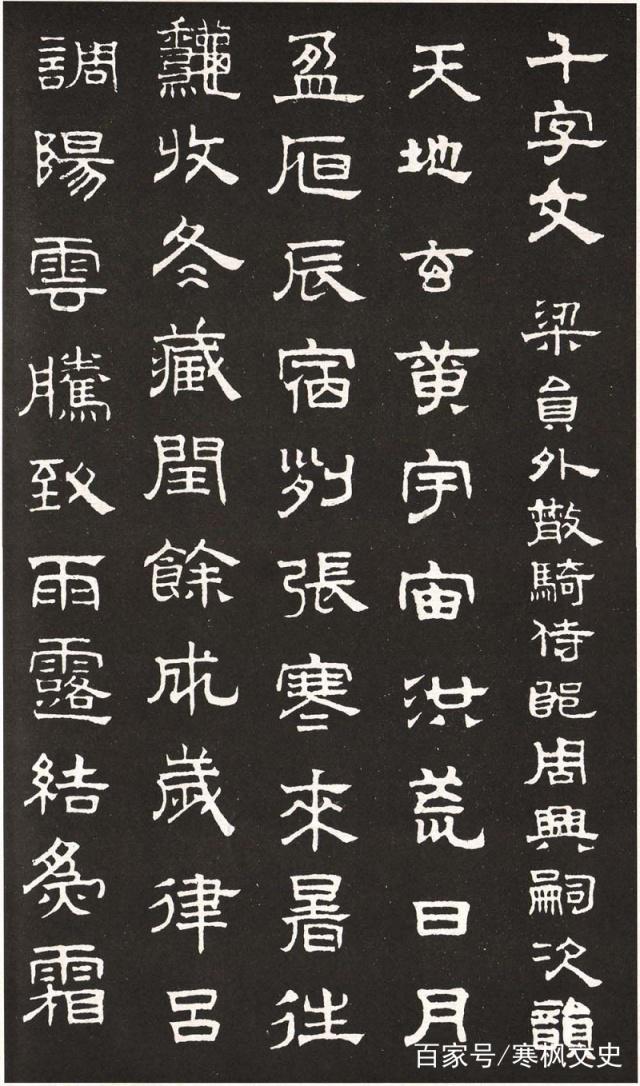 千字文 梁員外散騎侍郎周興嗣次韻
天地玄黄宇宙洪荒日月
盈昃辰宿列張寒來暑往
龝收冬藏閏餘成歲律呂
調陽雲騰致雨露結為霜
百家号/寒枫文史